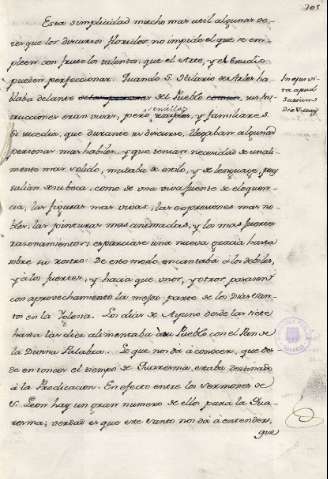 305
Esta simplicidad mucho mas util algunas ve-
ces que los discursos floridos no impide el que se em-
pleen con fruto los talentos, que el Arte, y el Estudio
pueden perfeccionar. Quando S. Hilario de Arles ha-
blaba delante del Pueblo sus Ins-
trucciones eran vivas, pero sencillas y familiares. S.
Si sucedia, que durante su discurso, llegaban algunas
personas mas habiles, y que tenian necesidad de un ali-
mento mas solido, mudaba de estilo, y de lenguaje, y
salian de su boca, como de una viva fuente de eloquen-
cia, las figuras mas vivas, las expresiones mas no-
bles, las pinturas mas animadas, y los mas fuertes
razonamientos; esparciase una nueva gracia hasta
sobre su rostro. De este modo encantaba a los debiles,
y a los fuertes, y hacia que unos, y otros pasasen
con aprovechamiento la mejor parte de los dias san-
tos en la Yglesia. Los dias de Ayuno desde las siete
hasta las diez alimentaba al Pueblo con el Pan de
la Divina Palabra. Lo que nos dá á conocer, que des-
de entonces el tiempo de Quaresma, estaba destinado
á la Predicacion. En efecto entre los sermones de
S. Leon hay un gran numero de ellos para la Qua-
resma; verdad es que este Santo nos dá á entender,
que
In ejus vi-
ta apud